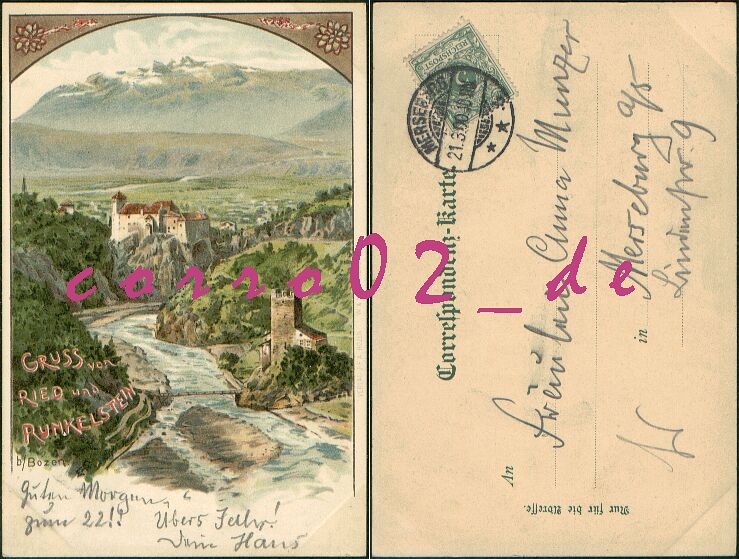 GRUSS von
RIED und
RUNKELSTEIN
b/Bozen
Guten Morgen
zum 22!! Übers Jahr!
Dein Hans
corro02_de
REICHSPOST
MERSEBURG
21.3.
Correspondenz-Karte
An
Fräulein Anna Munzer
in Merseburg a/S
Lindenstr. 9
Nur für die Adresse.